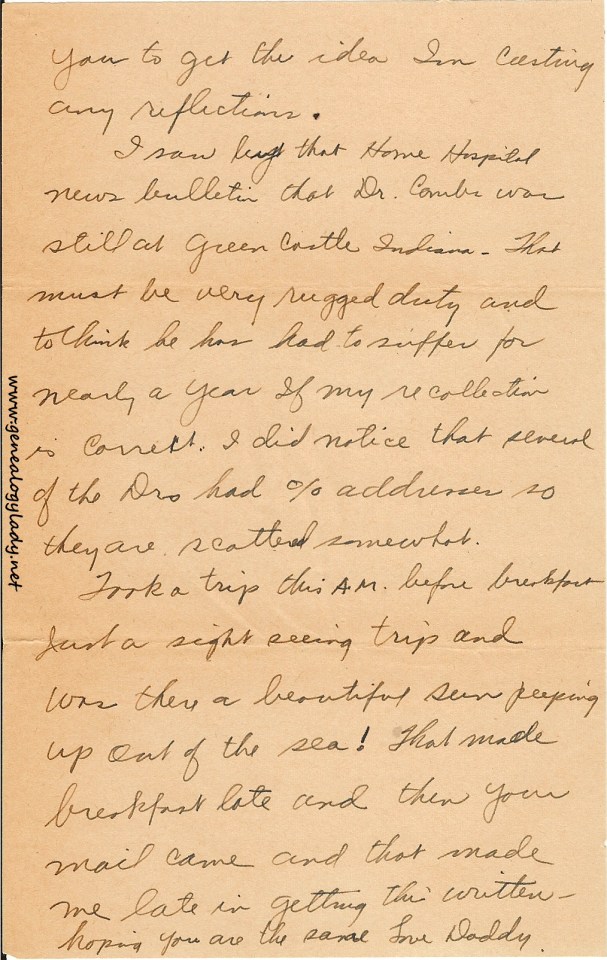 you to get the idea Im casting
any reflections.
I saw by that Home Hospital
news bulletin that Dr. Combs was
still at Green Castle Indiana - That
must be very rugged duty and
to think he has had to suffer for
nearly a year If my recollection
is correct. I did notice that several
of the Drs had c/o addresses so
they are scattered somewhat.
Took a trip this A.M. before breakfast
Just a sight seeing trip and
was there a beautiful sun peeping
up out of the sea! That made
breakfast late and then your
mail came and that made
me late in getting this written -
hoping you are the same Love Daddy.
www.genealogylady.net